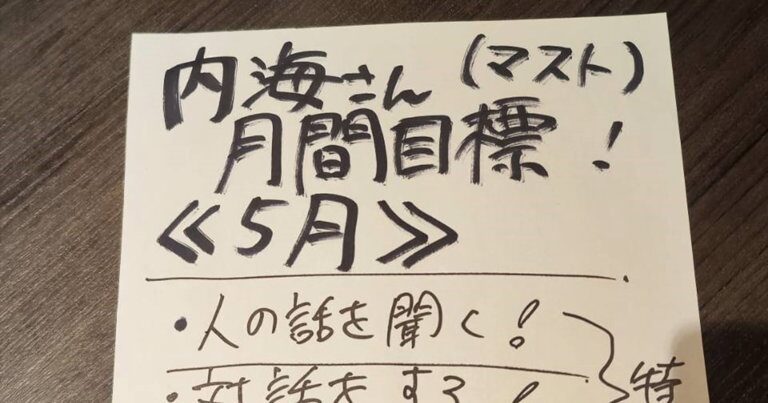 内海さん (マスト)
月間目標!
≪5月≫
・人の話を聞く!
・対話をする!
特